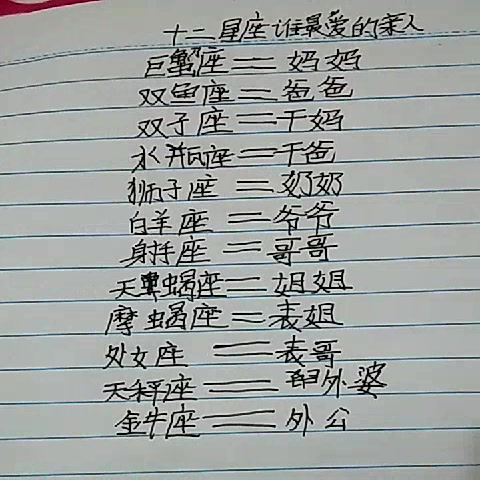 十二星座谁最爱的亲人
巨蟹座＝妈妈
双鱼座＝爸爸
双子座＝干妈
水瓶座＝干爸
狮子座＝奶奶
白羊座＝爷爷
射手座＝哥哥
天蝎座＝姐姐
摩蝎座＝表姐
处女座＝表哥
天秤座＝外婆
金牛座＝外公